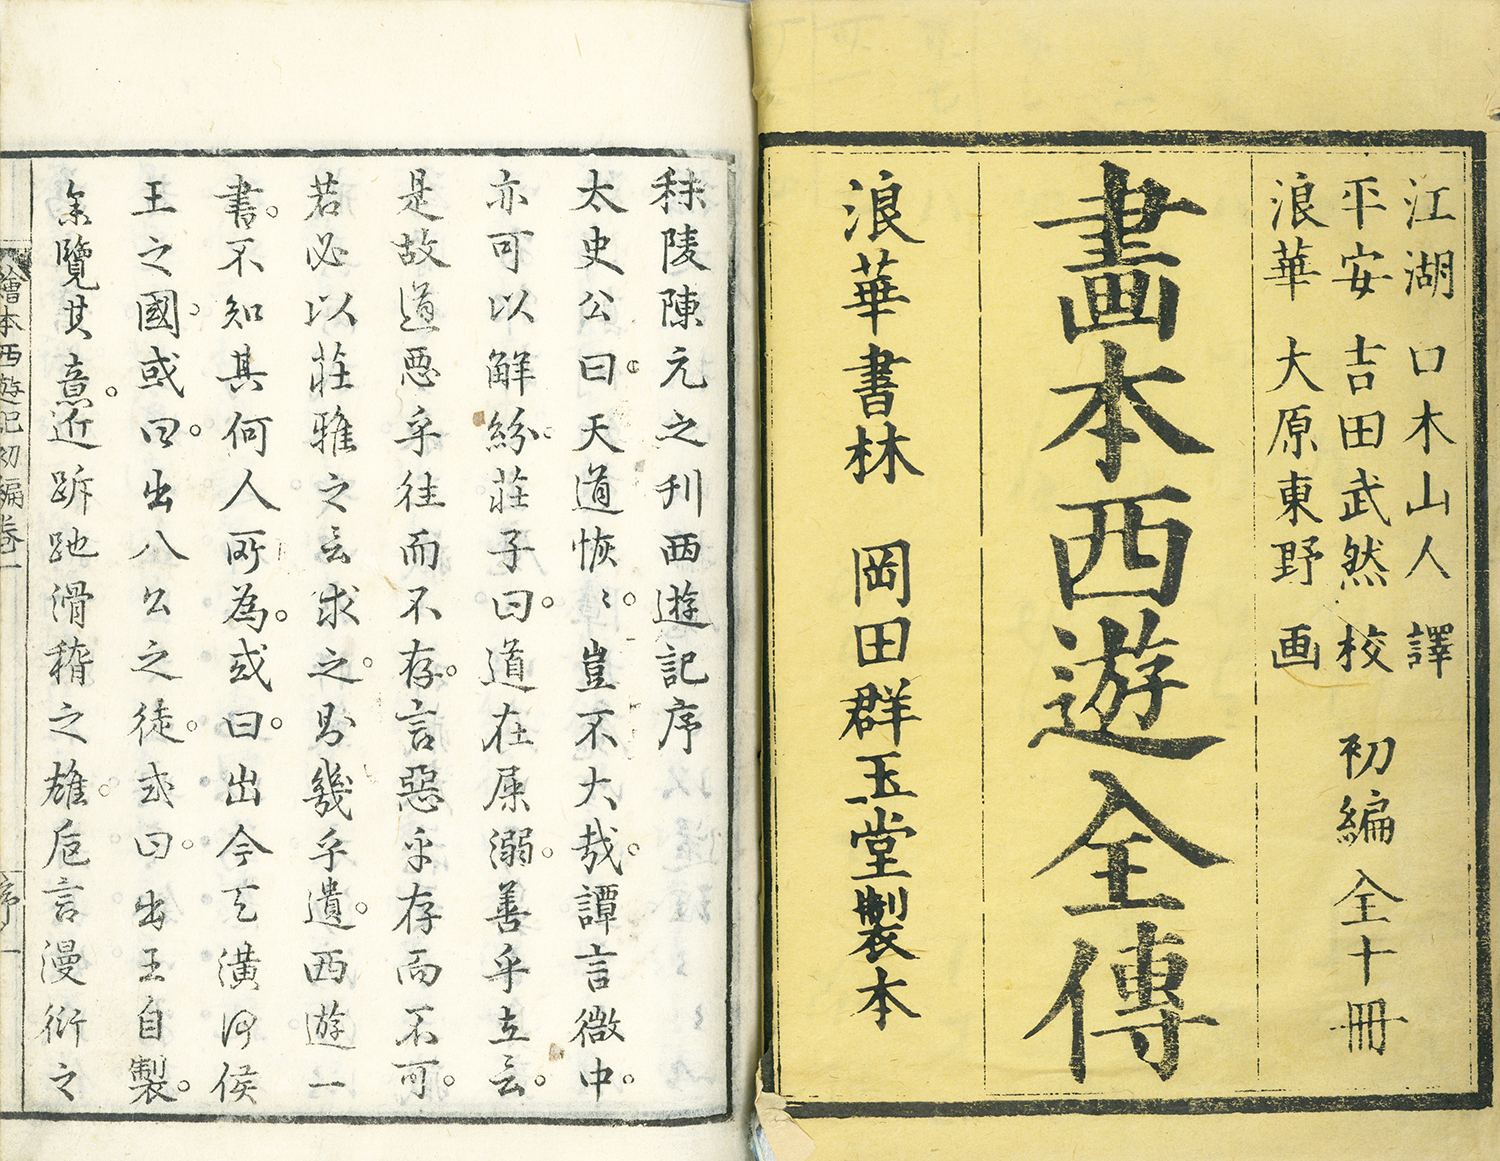 江湖 口木山人 譯
平安 吉田武然 校
浪華 大原東野 画
初編 全十冊
畫本西遊全傳
浪華書林 岡田群玉堂製本
秣陵陳元之刊西遊記序
太史公曰天道恢〻豈不大哉譚言微中
亦可以解紛莊子曰道在屎溺善乎立言
是故道惡乎往而不存言惡乎存而不可
若必以莊雅之言求之則幾乎遺西遊一
書不知其何人所為或曰出今天潢何侯
王之國或曰出八公之徒或曰出王自製
余覽其意近跅跎滑稽之雄卮言漫衍之
繪本西遊記初編卷一
序一